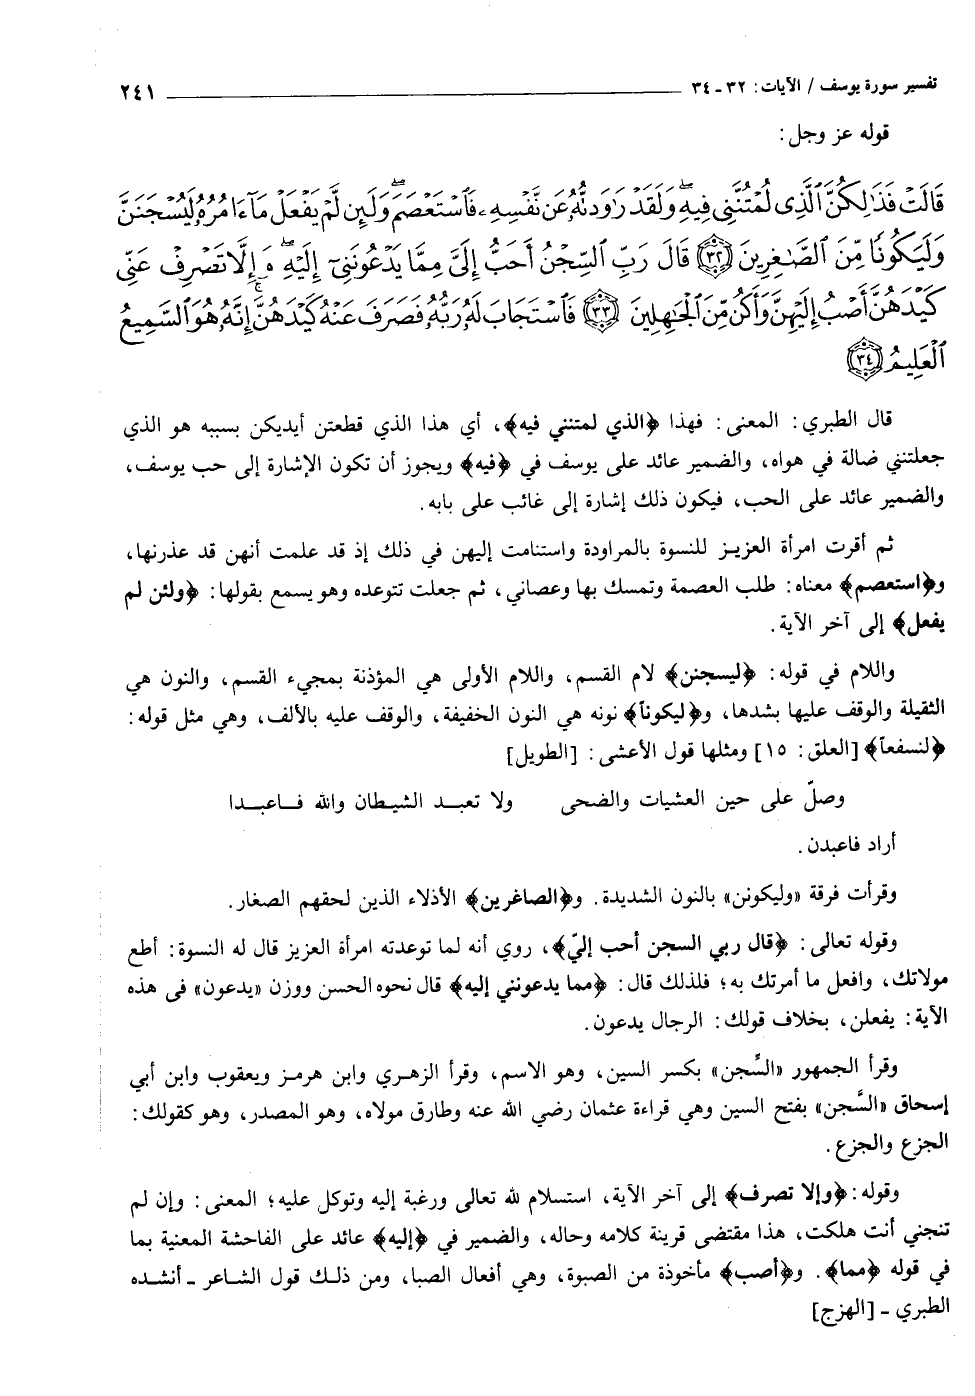 تفسير سورة يوسف / الآيات : ٣٢ - ٣٤ ٢٤١
قوله عز وجل :
قَالَتْ فَذَٰلِكُنَّ ٱلَّذِى لُمْتُنَّنِى فِيهِ ۖ وَلَقَدْ رَٰوَدتُّهُۥ عَن نَّفْسِهِۦ فَٱسْتَعْصَمَ ۖ وَلَئِن لَّمْ يَفْعَلْ مَآ ءَامُرُهُۥ لَيُسْجَنَنَّ
وَلَيَكُونًا مِّنَ ٱلصَّٰغِرِينَ ٣٢ قَالَ رَبِّ ٱلسِّجْنُ أَحَبُّ إِلَىَّ مِمَّا يَدْعُونَنِىٓ إِلَيْهِ ۖ وَإِلَّا تَصْرِفْ عَنِّى
كَيْدَهُنَّ أَصْبُ إِلَيْهِنَّ وَأَكُن مِّنَ ٱلْجَٰهِلِينَ ٣٣ فَٱسْتَجَابَ لَهُۥ رَبُّهُۥ فَصَرَفَ عَنْهُ كَيْدَهُنَّ ۚ إِنَّهُۥ هُوَ ٱلسَّمِيعُ
ٱلْعَلِيمُ ٣٤
قال الطبري : المعنى : فهذا ﴿الذي لمتنني فيه﴾، أي هذا الذي قطعتن أيديكن بسببه هو الذي
جعلتنني ضالة في هواه، والضمير عائد على يوسف في ﴿فيه﴾ ويجوز أن تكون الإشارة إلى حب يوسف،
والضمير عائد على الحب، فيكون ذلك إشارة إلى غائب على بابه.
ثم أقرت امرأة العزيز للنسوة بالمراودة واستنامت إليهن في ذلك إذ قد علمت أنهن قد عذرنها،
و﴿استعصم﴾ معناه : طلب العصمة وتمسك بها وعصاني، ثم جعلت تتوعده وهو يسمع بقولها : ﴿ولئن لم
يفعل﴾ إلى آخر الآية.
واللام في قوله : ﴿ليسجنن﴾ لام القسم، واللام الأولى هي المؤذنة بمجيء القسم، والنون هي
الثقيلة والوقف عليها بشدها، و﴿ليكوناً﴾ نونه هي النون الخفيفة، والوقف عليه بالألف، وهي مثل قوله :
﴿لنسفعاً﴾ [العلق : ١٥] ومثلها قول الأعشى : [الطويل]
وصلّ على حين العشيات والضحى ولا تعبد الشيطان والله فاعبدا
أراد فاعبدن.
وقرأت فرقة «وليكونن» بالنون الشديدة. و﴿الصاغرين﴾ الأذلاء الذين لحقهم الصغار.
وقوله تعالى : ﴿قال ربي السجن أحب إليّ﴾، روي أنه لما توعدته امرأة العزيز قال له النسوة : أطع
مولاتك، وافعل ما أمرتك به؛ فلذلك قال : ﴿مما يدعونني إليه﴾ قال نحوه الحسن ووزن «يدعون» في هذه
الآية : يفعلن، بخلاف قولك : الرجال يدعون.
وقرأ الجمهور «السِّجن» بكسر السين، وهو الاسم، وقرأ الزهري وابن هرمز ويعقوب وابن أبي
إسحاق «السَّجن» بفتح السين وهي قراءة عثمان رضي الله عنه وطارق مولاه، وهو المصدر، وهو كقولك :
الجزع والجزع.
وقوله : ﴿وإلا تصرف﴾ إلى آخر الآية، استسلام لله تعالى ورغبة إليه وتوكل عليه؛ المعنى : وإن لم
تنجني أنت هلكت، هذا مقتضى قرينة كلامه وحاله، والضمير في ﴿إليه﴾ عائد على الفاحشة المعنية بما
في قوله ﴿مما﴾. و﴿أصب﴾ مأخوذة من الصبوة، وهي أفعال الصبا، ومن ذلك قول الشاعر - أنشده
الطبري - [الهزج]